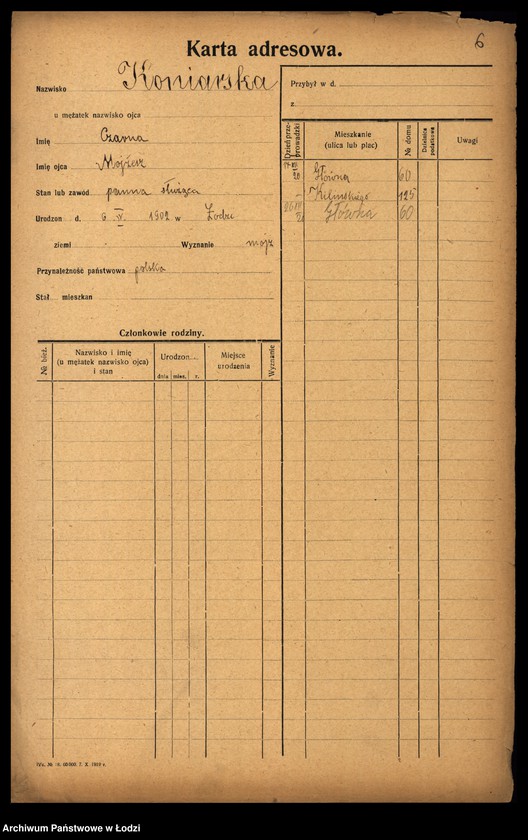 6
Karta adresowa.
Nazwisko Koniarska
u mężatek nazwisko ojca
Imię Czarna
Imię ojca Mojżesz
Stan lub zawód panna służąca
Urodzon d. 6 IV 1902 w Łodzi
ziemi Wyznanie mojż
Przynależność państwowa polska
Stał mieszkan
Członkowie rodziny.
№ bież.
Nazwisko i imię
(u mężatek nazwisko ojca)
i stan
Urodzon...
dnia mies. r.
Miejsce
urodzenia
Wyznanie
Przybył w d.
z
Dzień prze-
prowadzki
Mieszkanie
(ulica lub plac)
№ domu
Dzielnica
podatkowa
Uwagi
Główna 60
Kilińskiego 125
Główna 60
7. X. 1919 r.
Archiwum Państwowe w Łodzi